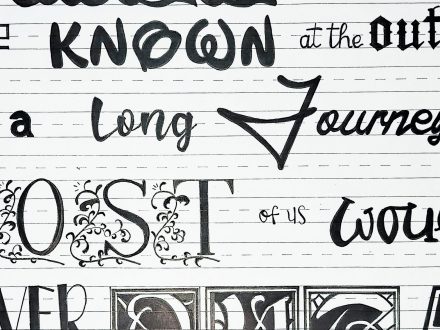 KNOWN at the out
a Long Journey
OST of us wou
VER